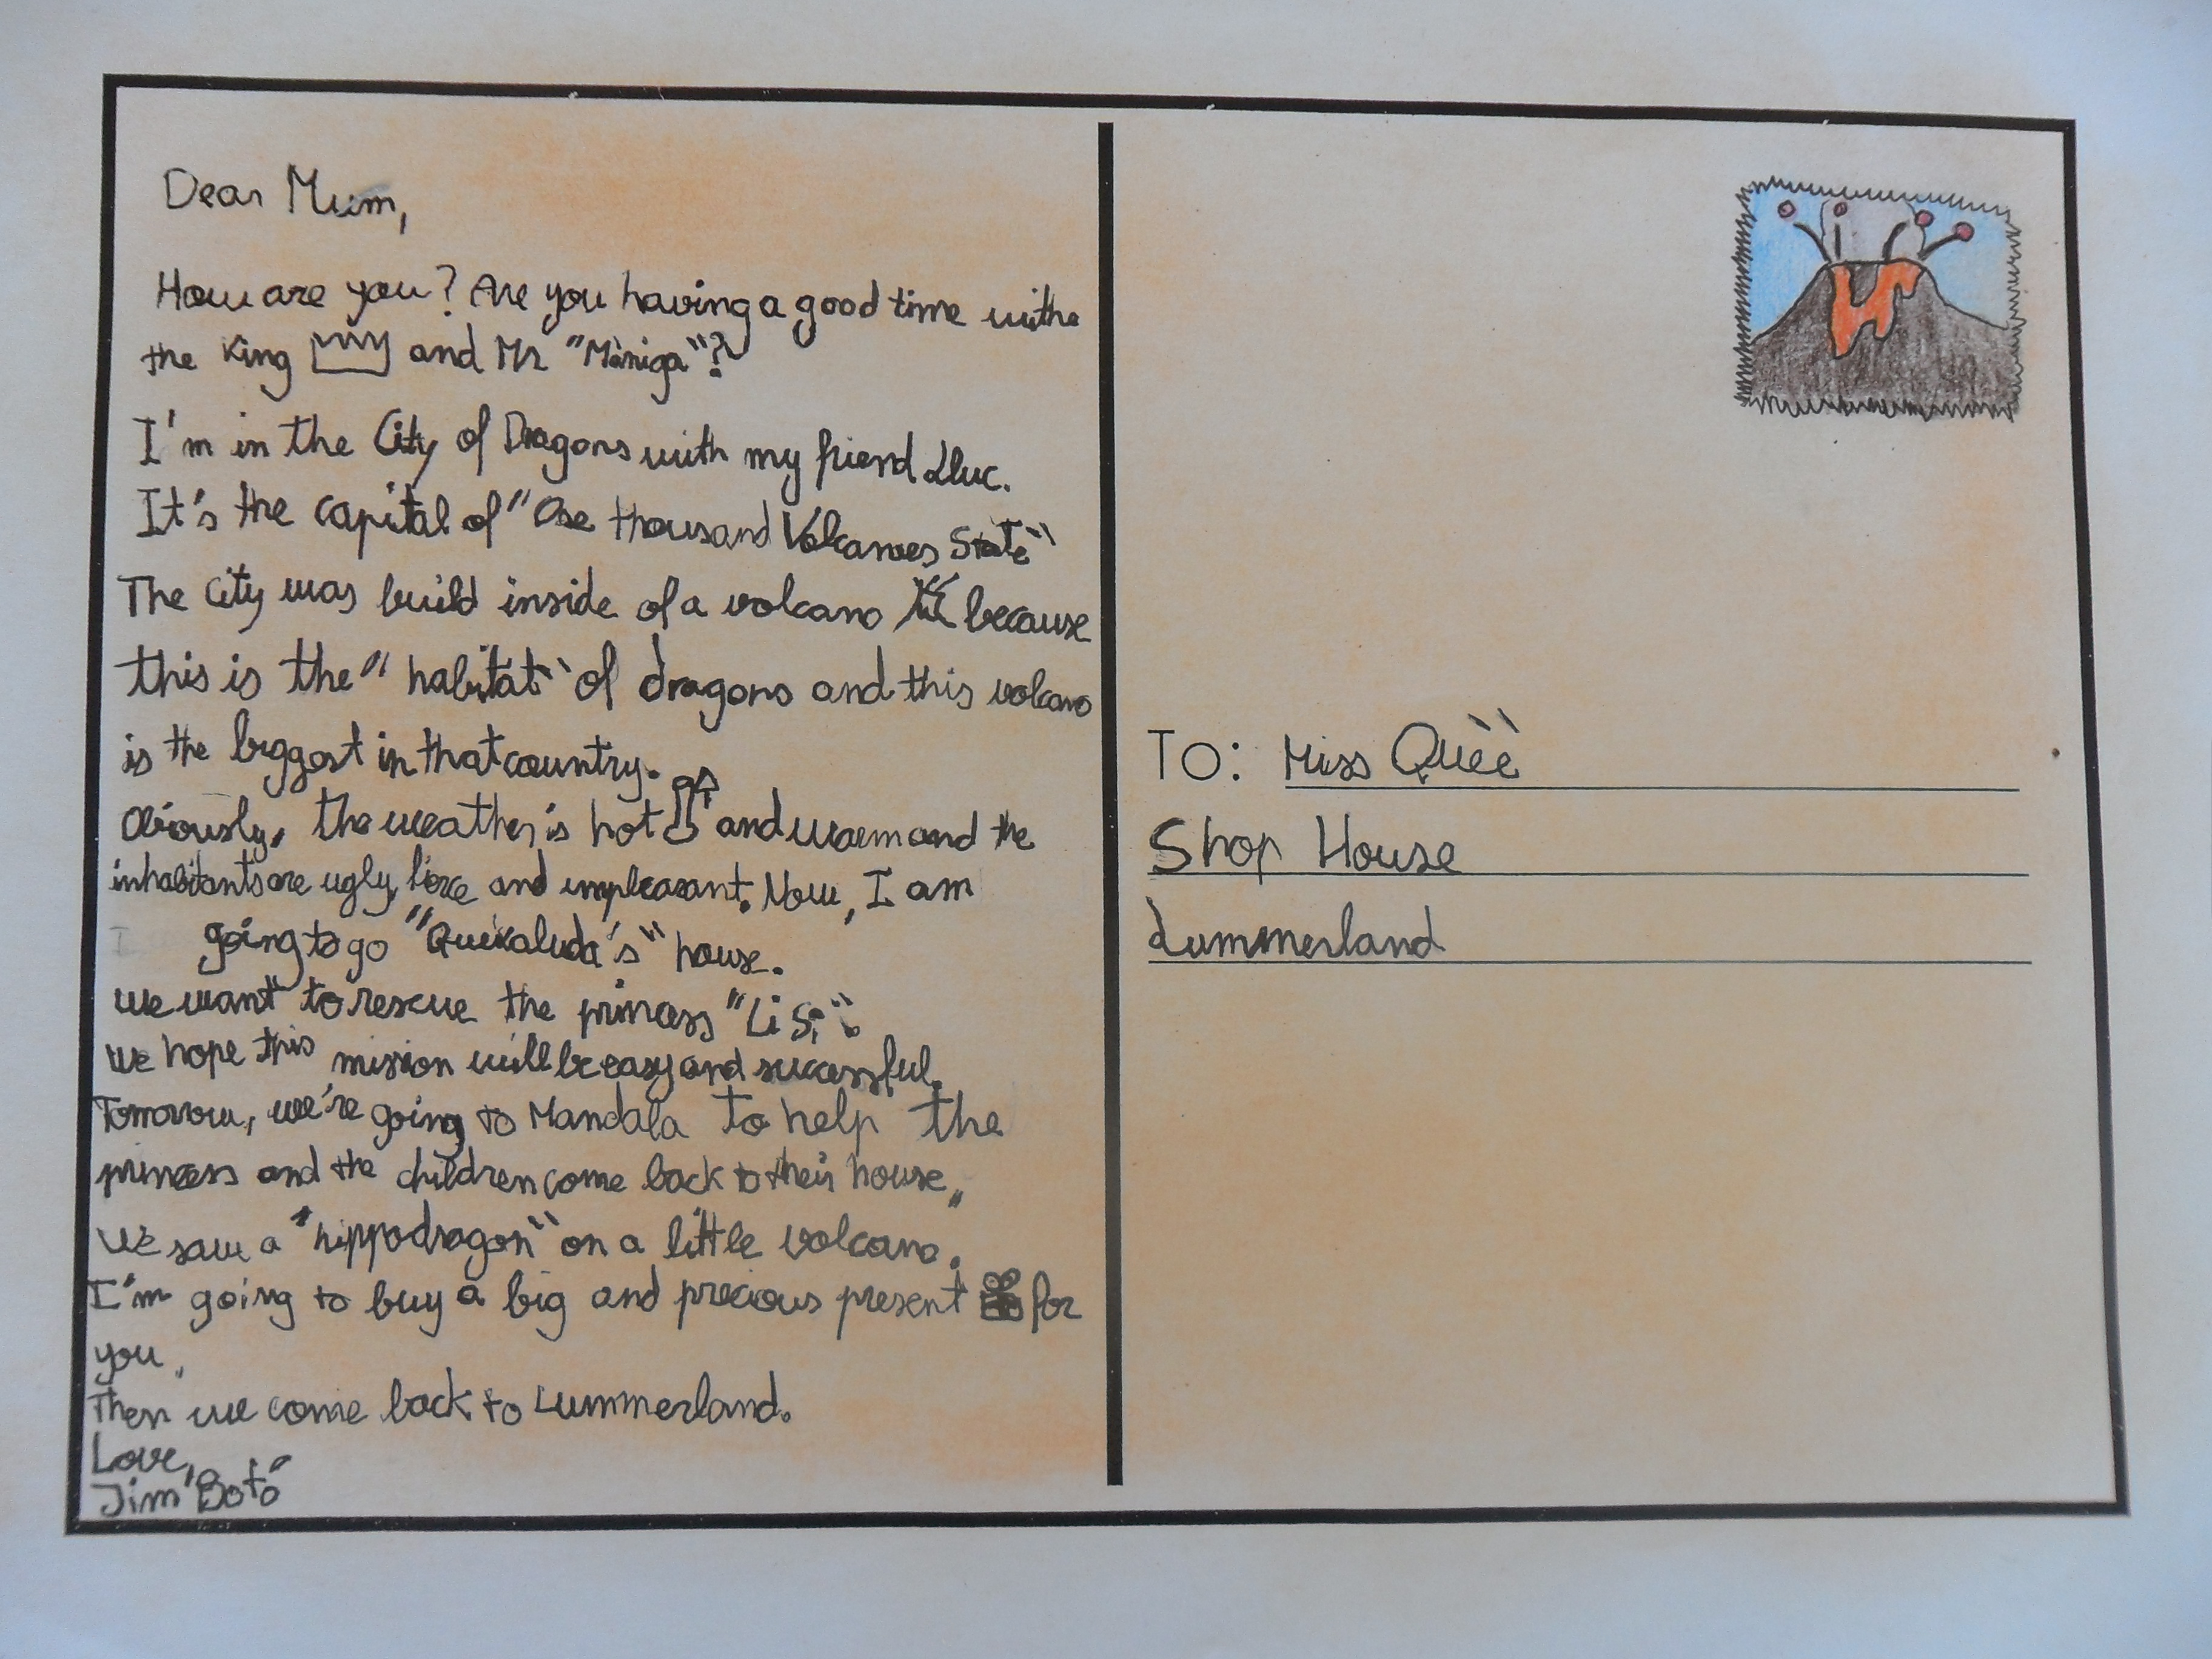 Dear Mum,
How are you? Are you having a good time withe
the King and Mr "Màniga"?
I'm in the City of Dragons with my friend Lluc.
It's the capital of "One thousand Volcanoes State"
The City was build inside of a volcano because
this is the "habitat" of dragons and this volcano
is the biggest in that country.
Obiously, the weather is hot and warm and the
inhabitants are ugly, fierce and unpleasant. Now, I am
going to go "Queixaluda's" house.
We want to rescue the princess "Li Si".
We hope this mission will be easy and successful.
Tomorrow, we're going to Mandala to help the
princess and the children come back to their house.
We saw a "hippodragon" on a little volcano.
I'm going to buy a big and precious present for
you.
Then we come back to Lummerland.
Love,
Jim Botó
TO: Miss Quèè
Shop House
Lummerland